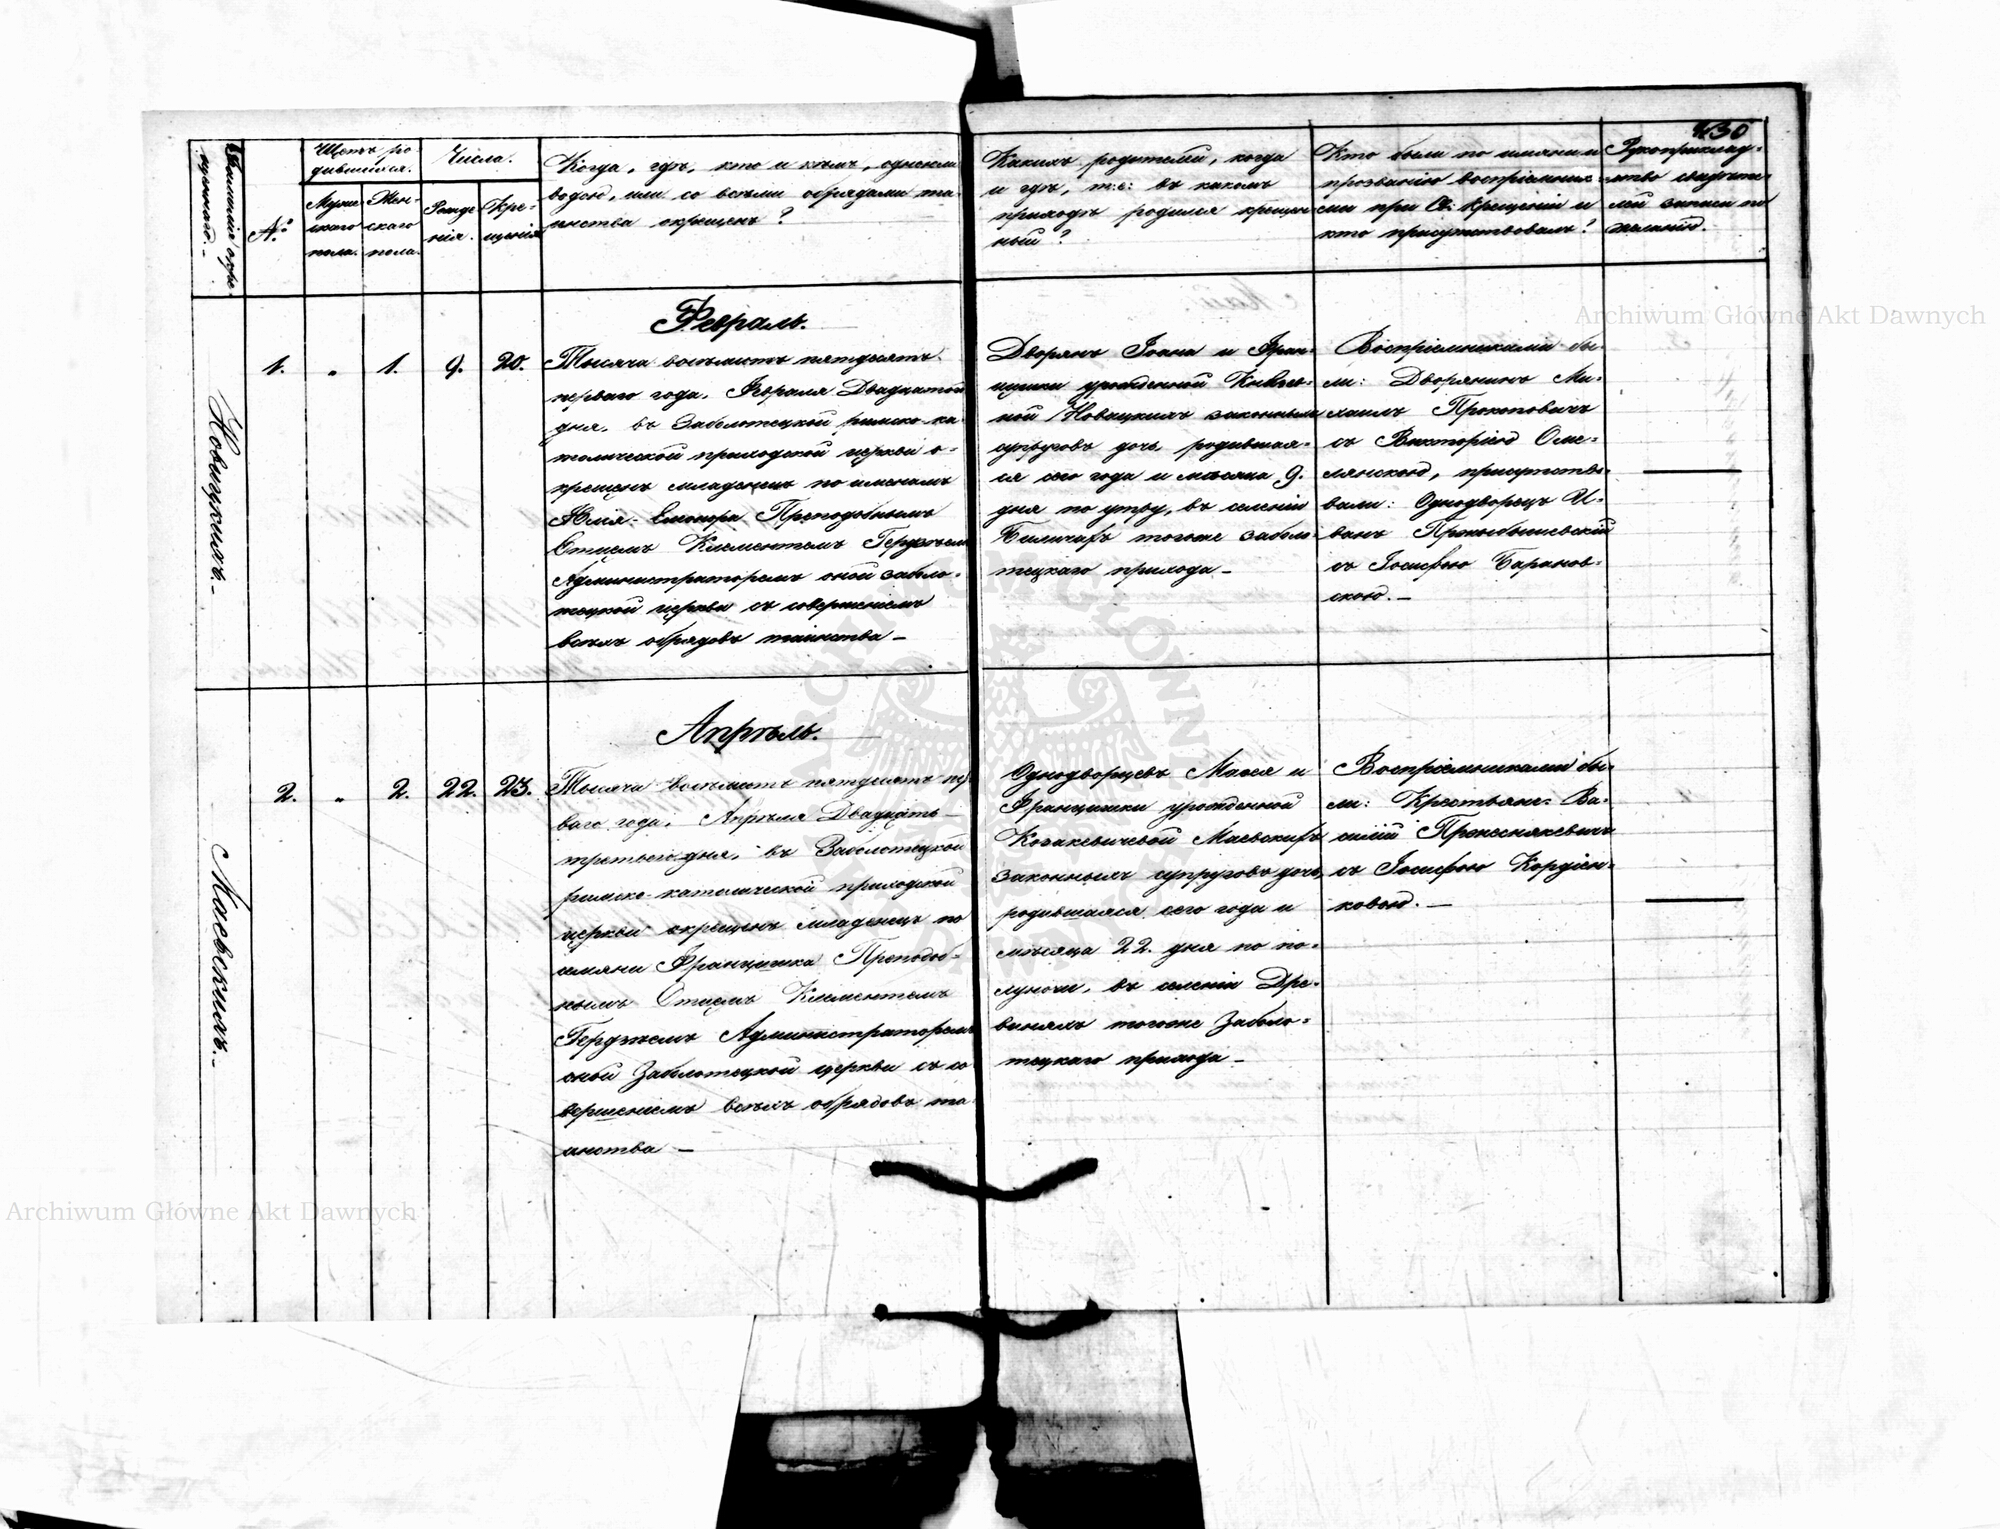 430
Фамилія окре-
щеннаго.
№
Щетъ ро
дившихся.
Муже-
скаго
пола.
Жен-
скаго
пола.
Числа.
Рожде
нія.
Кре-
щенія
Когда, гдѣ, кто и кѣмъ, одною ли
водою, или со всѣми обрядами та-
инства окрещенъ?
Какихъ родителей, когда
и гдѣ, т:е: въ какомъ
приходѣ родился крещен-
ный?
Кто были по имяни и
прозванію воспріемник-
ами при Св: Крещеніи и
кто присутствовалъ?
Рукоприклад-
ство свидѣте-
лей записи по
желанію.
Новицкихъ.
1. „ 1. 9. 20.
Февраль.
Тысяча восемьсотъ пятдесятъ
перваго года, Февраля Двадцатого
дня, въ Заболотецкой римско-ка
толической приходской церкви о-
крещенъ младенецъ по именамъ
Юлія-Елеонора Преподобнымъ
Отцемъ Клементемъ
Администраторомъ оной забало-
тецкой церкви съ совершеніемъ
всѣхъ обрядовъ таинства —
Дворянъ Іоана и Фран-
цишки урожденной
ной Новацкихъ законныхъ
супруговъ дочь, родившая-
ся сего года и мѣсяца 9.
дня по утру, въ селеніи
Биличахъ тогоже забол-
тецкаго прихода —
Воспріемниками бы-
ли: Дворянинъ Ми-
хаилъ Прокоповичъ
съ Викторіею Оме-
лянскою, присутство-
вали: Однодворецъ И-
ванъ
съ Іосифою Баранов-
скою. —
Маевскихъ.
2. „ 2. 22. 23.
Апрѣль.
Тысяча восемьсотъ пятдесятъ пер
ваго года, Апрѣля Двадцать
третьего дня, въ Заболотецкой
римско-католической приходской
церкви окрещенъ младенецъ по
имяни Францишка Преподоб-
нымъ Отцемъ Клементемъ
Администраторомъ
оной Заболотецкой церкви съ со
вершеніемъ всѣхъ обрядовъ та
инства —
Однодворцевъ Матея и
Францишки урожденной
Козакевичевой Маевскихъ
законныхъ супруговъ дочь,
родившаяся сего года и
мѣсяца 22. дня по по-
луночи, въ селеніи Дре-
виняхъ тогоже Заболо-
тецкаго прихода —
Воспріемниками бы-
ли: Крестьяне: Ва-
силій
съ Іосифою Кордіен-
ковою. —
Archiwum Główne Akt Dawnych
Archiwum Główne Akt Dawnych